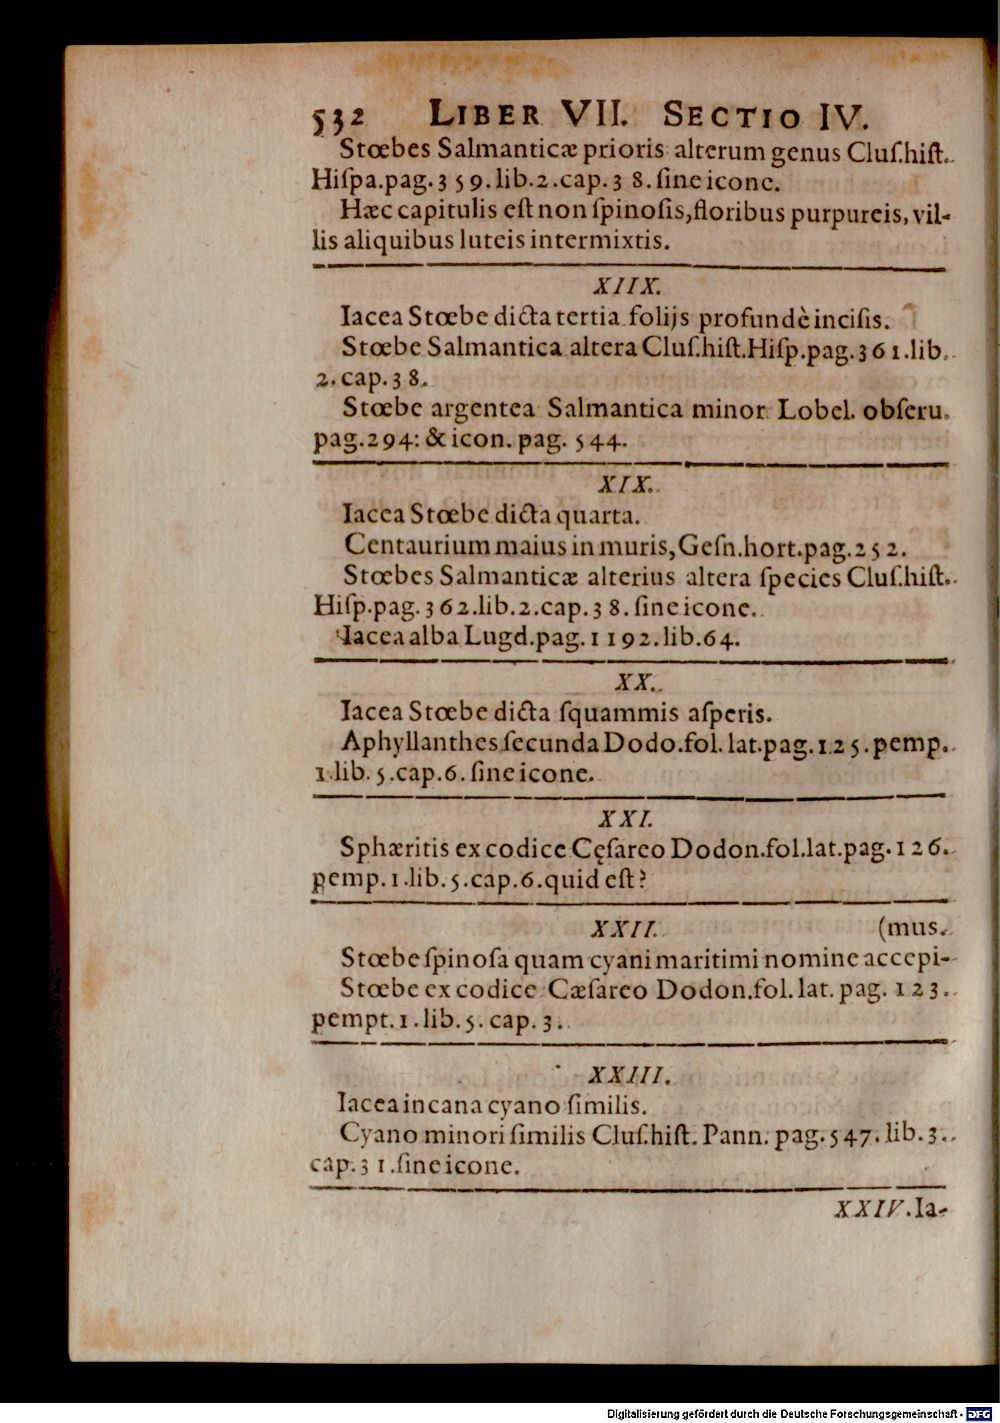 532 LIBER VII. SECTIO IV.
Stœbes Salmanticæ prioris alterum genus Cluſ.hiſt.
Hiſpa.pag.359.lib.2.cap.38.ſine icone.
Hæc capitulis eſt non ſpinoſis,floribus purpureis, vil-
lis aliquibus luteis intermixtis.
XIIX.
Iacea Stœbe dicta tertia folijs profundè inciſis.
Stœbe Salmantica altera Cluſ.hiſt.Hiſp.pag.361.lib.
2.cap.38.
Stœbe argentea Salmantica minor Lobel. obſeru.
pag.294: & icon. pag. 544.
XIX.
Iacea Stœbe dicta quarta.
Centaurium maius in muris, Geſn.hort.pag.252.
Stœbes Salmanticæ alterius altera ſpecies Cluſ.hiſt.
Hiſp.pag.362.lib.2.cap.38.ſine icone.
Iacea alba Lugd.pag.1192.lib.64.
XX.
Iacea Stœbe dicta ſquammis aſperis.
Aphyllanthes ſecunda Dodo.fol.lat.pag.125.pemp.
1.lib.5.cap.6. ſine icone.
XXI.
Sphæritis ex codice Cęſareo Dodon.fol.lat.pag.126.
pemp.1.lib.5.cap.6.quid eſt?
XXII. (mus.
Stœbe ſpinoſa quam cyani maritimi nomine accepi-
Stœbe ex codice Cæſareo Dodon.fol.lat. pag. 123.
pempt.1.lib.5. cap.3.
XXIII.
Iacea incana cyano ſimilis.
Cyano minori ſimilis Cluſ.hiſt. Pann. pag.547.lib.3.
cap.31.ſine icone.
XXIV.Ia-
Digitalisierung gefördert durch die Deutsche Forschungsgemeinschaft - DFG